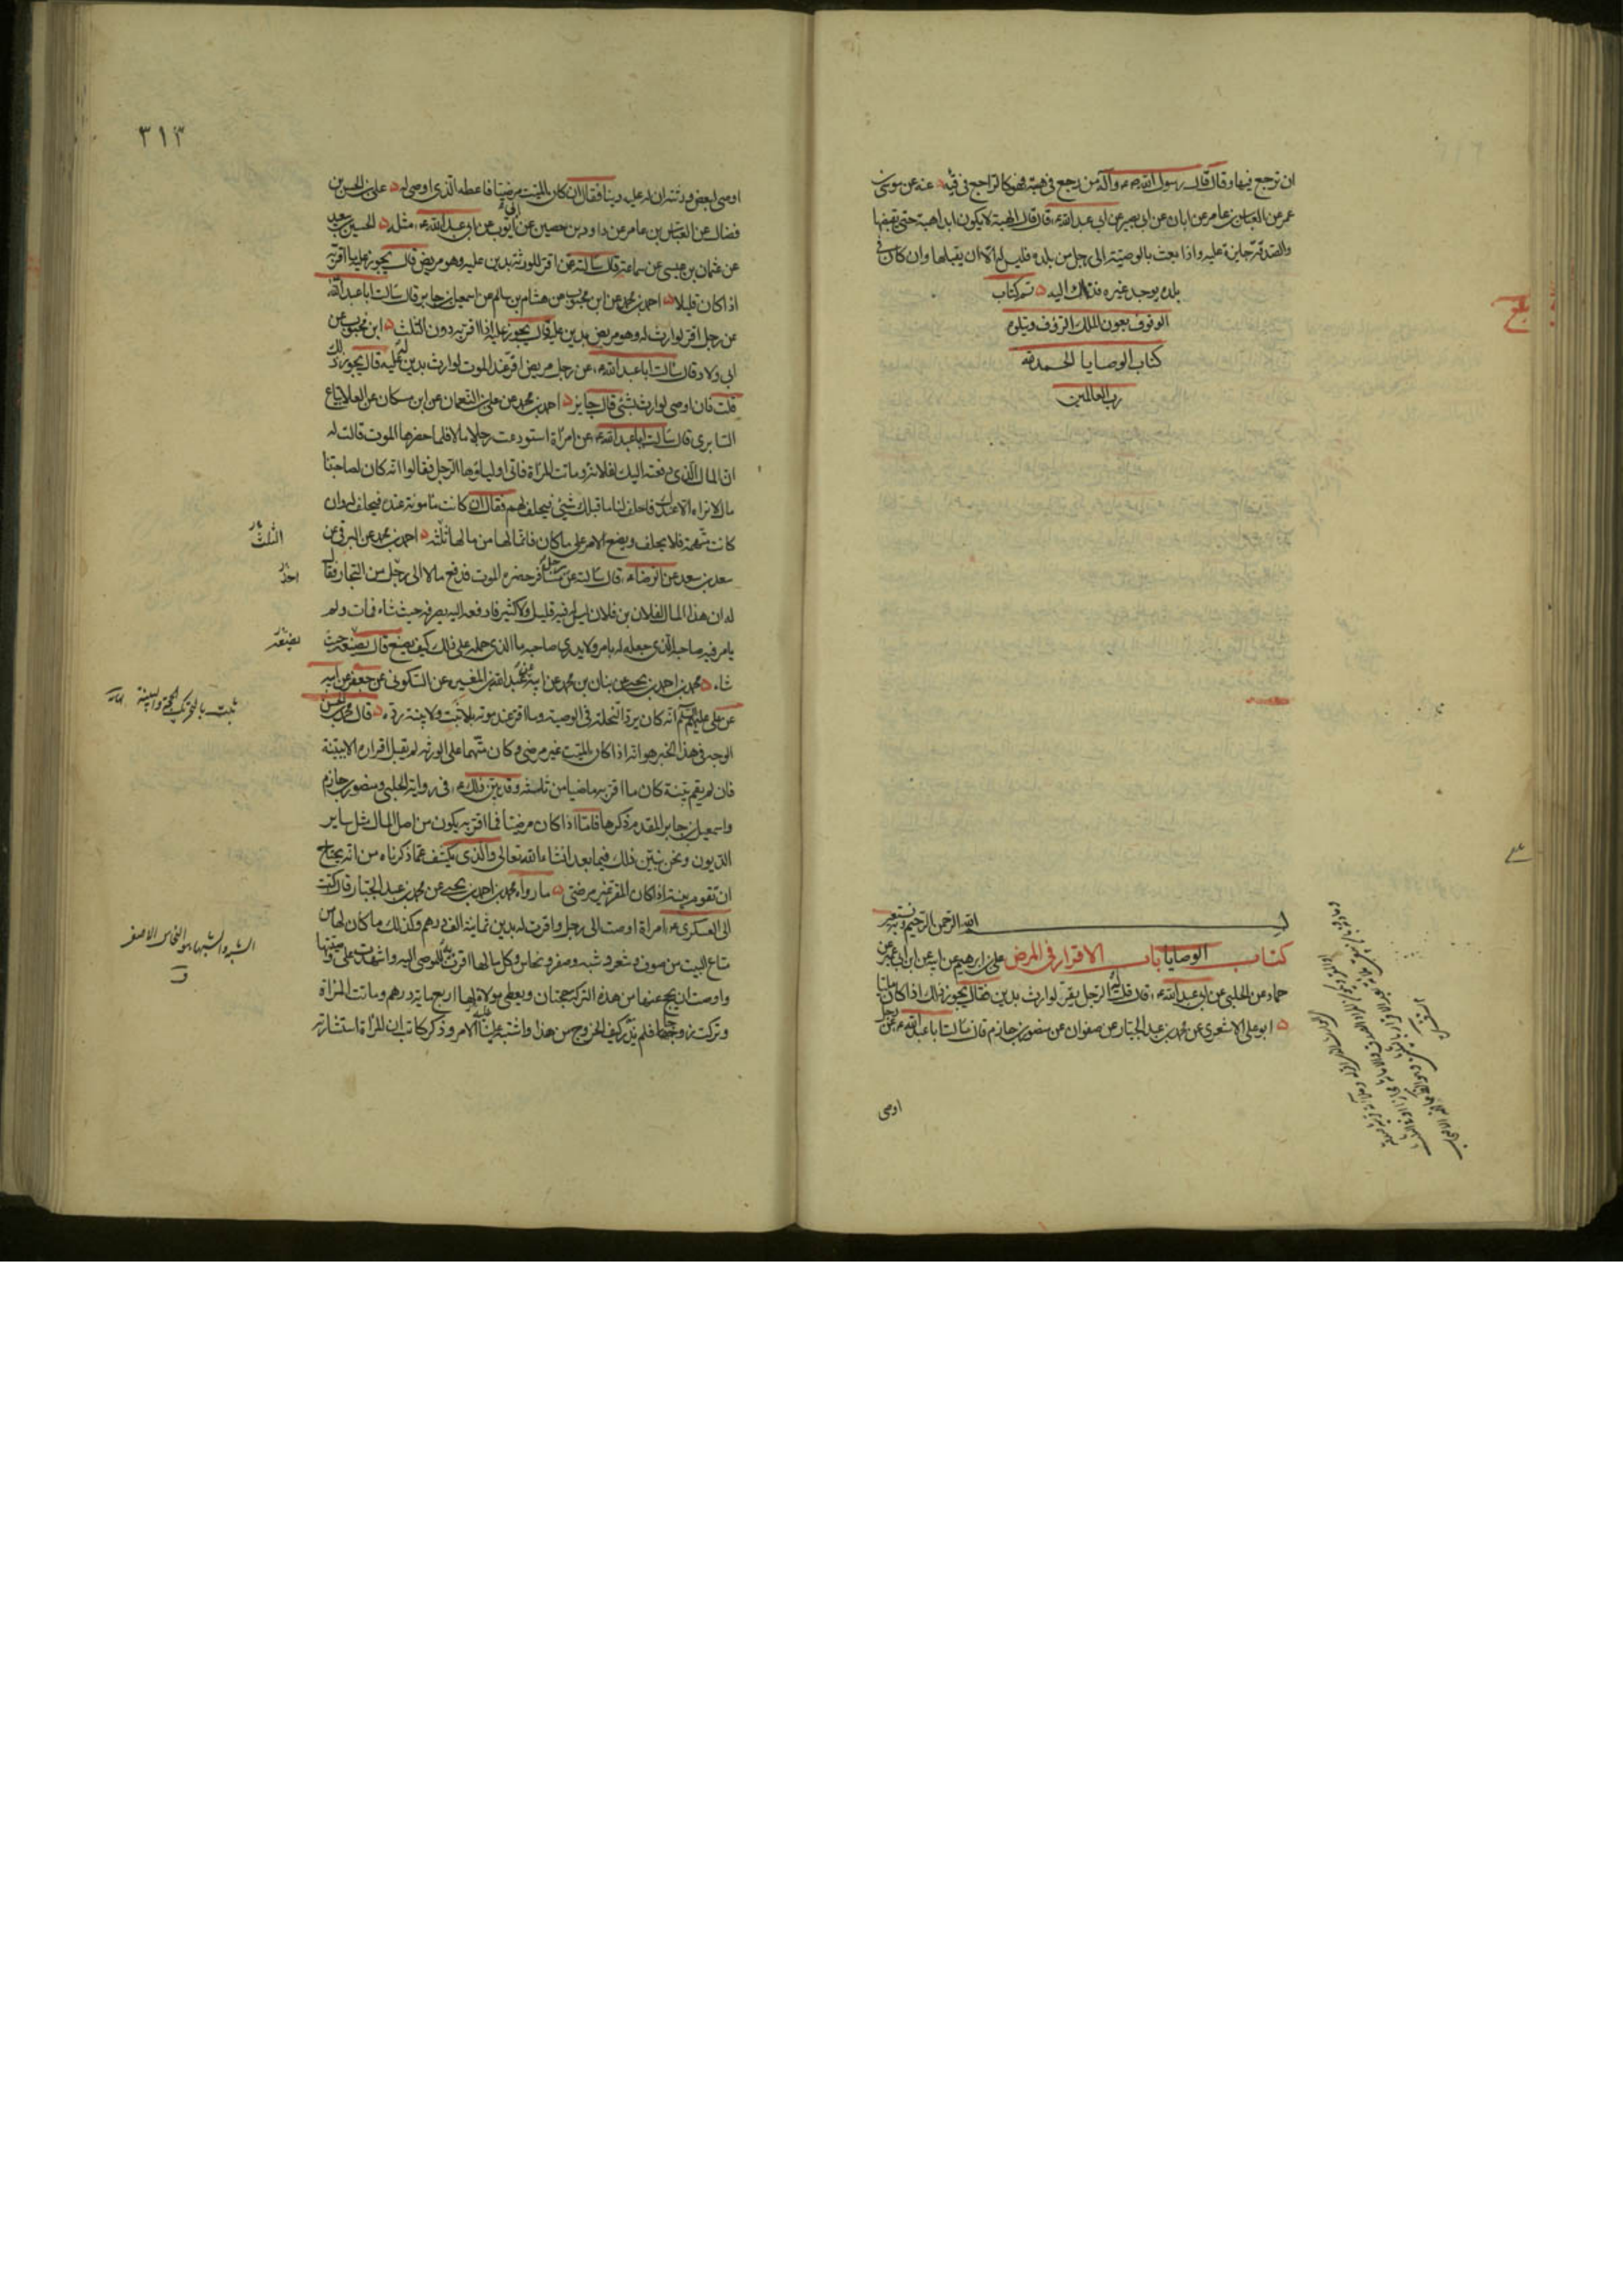 ان ترجع فيها وقال قال رسول الله ص وآله من رجع في هبته فهو كالراجع في قيئه عنه عن موسى بن
عمر عن العباس بن عامر عن ابان عن ابى بصير عن ابى عبدالله ع قال قال الهبة لا يكون ابدا هبة حتى يقبضها
والصدقة جايزة عليه واذا بعث بالوصية الى رجل من بلده فليس له الا ان يقبلها وان كان في
بلده يوجد غيره فذلك اليه تم كتاب
الوقوف بعون الملك الرؤف ويتلوه
كتاب الوصايا الحمد لله
رب العالمين
بسم الله الرحمن الرحيم وبه نستعين
كتاب الوصايا باب الاقرار في المرض على بن ابرهيم عن ابيه عن ابن ابى عمير عن
حماد عن الحلبي عن ابى عبدالله ع قال قلت له الرجل يقر لوارث بدين فقال يجوز ذلك اذا كان مليا
ابو على الاشعرى عن محمد بن عبدالجبار عن صفوان عن منصور بن حازم قال سالت اباعبدالله ع عن رجل
اوصى
٣١٣
اوصى لبعض ورثته ان له عليه دينا فقال ان كان الميت مرضيا فاعطه الذى اوصى له على بن الحسن بن
فضال عن العباس بن عامر عن داود بن حصين عن ابى ايوب عن ابى عبدالله ع مثله الحسين بن سعيد
عن عثمان بن عيسى عن سماعة قال سالته عن اقر للورثة بدين عليه وهو مريض قال يجوز عليه ما اقر به
اذا كان قليلا احمد بن محمد عن ابن محبوب عن هشام بن سالم عن اسمعيل بن جابر قال سالت اباعبدالله ع
عن رجل اقر لوارث له وهو مريض بدين عليه قال يجوز عليه اذا اقر به دون الثلث ابن محبوب عن
ابى ولاد قال سالت اباعبدالله ع عن رجل مريض اقر عند الموت لوارث بدين له عليه قال يجوز ذلك
قلت فان اوصى لوارث بشئ قال جايز احمد بن محمد عن على بن النعمان عن ابن مسكان عن العلا بياع
السابرى قال سالت اباعبدالله ع عن امرأة استودعت رجلا مالا فلما حضرها الموت قالت له
ان المال الذى دفعته اليك لفلانة وماتت المرأة فاتى اولياؤها الرجل فقالوا انه كان لصاحبتنا
مال لا نراه الا عندك فاحلف لنا ما قبلك شئ فيحلف لهم فقال ان كانت مأمونة عنده فيحلف لهم وان
كانت متهمة فلا يحلف ويضع الامر على ما كان فانما لها من مالها ثلثه احمد بن محمد عن البرقى عن
سعد بن سعد عن الرضا ع قال سالته عن رجل مسافر حضره الموت فدفع مالا الى رجل من التجار فقال
له ان هذا المال لفلان بن فلان ليس له فيه قليل ولا كثير فادفعه اليه يصرفه حيث شاء فمات ولم
يامر فيه صاحبه الذى جعله له بامر ولا يدرى صاحبه ما الذى حمله على ذلك كيف يصنع قال يضعه حيث
شاء محمد بن احمد بن يحيى عن بنان بن محمد عن ابيه عن عبدالله بن المغيره عن السكونى عن جعفر عن ابيه
عن على عليهم السلم انه كان يرد النحلة في الوصية وما اقر عند موته بلا ثبت ولا بينة رده قال محمد بن الحسن
الوجه في هذا الخبر هو انه اذا كان الميت غير مرضى وكان متهما على الورثه لم يقبل اقراره الا ببينة
فان لم يقم بينة كان ما اقر به ماضيا من ثلثه وقد بين ذلك ع في رواية الحلبي ومنصور بن حازم
واسمعيل بن جابر المقدم ذكرها فاما اذا كان مرضيا فما اقر به يكون من اصل المال مثل ساير
الديون ونحن نبين ذلك فيما بعد انشاء الله تعالى والذى يكشف عما ذكرناه من انه يحتاج
ان تقوم بينة اذا كان المقر غير مرضى ما رواه محمد بن احمد بن يحيى عن محمد بن عبدالجبار قال كتبت
الى العسكرى ع امرأة اوصت الى رجل واقرت له بدين ثمانية الف درهم وكذلك ما كان لها من
متاع البيت من صوف وشعر وشبه وصفر ونحاس وكل مالها اقرت به للموصى اليه واشهدت على وصيتها
واوصت ان يحج عنها من هذه التركة حجتان ويعطى مولاة لها اربع ماية درهم وماتت المرأة
وتركت زوجا فلم ندر كيف الخروج من هذا واشتبه علينا الامر وذكر كاتب ان المرأة استشارته
الثلث
يضعه
ثبت بالتحريك الحجة والبينة
الشبه والشبهان هو النحاس الاصفر